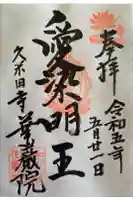 奉拝
令和五年
五月廿一日
愛染明王
久米田寺
華厳院